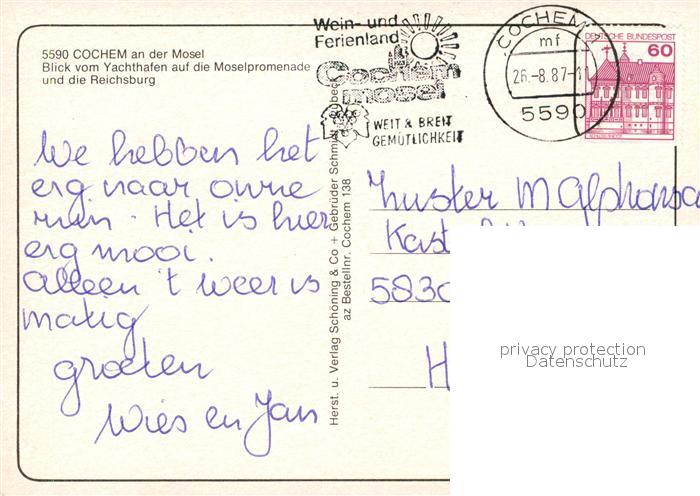 5590 COCHEM an der Mosel
Blick vom Yachthafen auf die Moselpromenade
und die Reichsburg
Wein- und
Ferienland
Cochem
mosel
WEIT & BREIT
GEMÜTLICHKEIT
COCHEM
mf
26.-8.87-11
5590
DEUTSCHE BUNDESPOST
60
We hebben het
erg naar onne
Het is hier
erg mooi.
alleen 't weer is
matig
groeten
Wies en Jan
Herst. u. Verlag Schöning & Co + Gebrüder Schmidt
az Bestellnr. Cochem 138
Zuster M Alphonsa
Kast
5830
H
privacy protection
Datenschutz